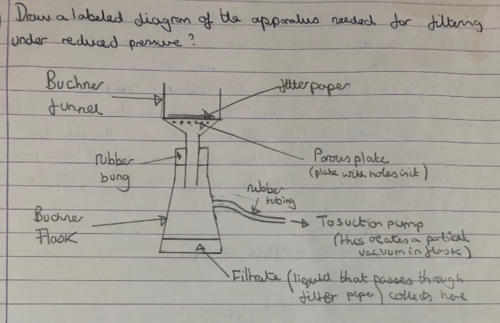 Draw a labeled diagram of the apparatus needed for filtering
under reduced pressure?
Buchner
funnel
filter paper
rubber
bung
Porous plate
(plate with holes in it)
rubber
tubing
Buchner
Flask
To suction pump
(this creates a partial
vacuum in flask)
Filtrate (liquid that passes through
filter paper) collects here